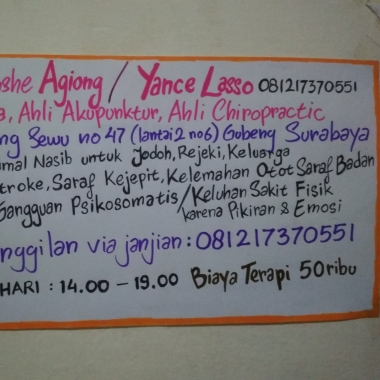 she Agiong / Yance Lasso 081217370551
a, Ahli Akupunktur, Ahli Chiropractic
ng Sewu no 47 (lantai 2 no 6) Gubeng Surabaya
mal Nasib untuk Jodoh, Rejeki, Keluarga
troke, Saraf Kejepit, Kelemahan Otot Saraf Badan
Gangguan Psikosomatis / Keluhan Sakit Fisik
karena Pikiran & Emosi
nggilan via janjian : 081217370551
HARI : 14.00 - 19.00 Biaya Terapi 50 ribu